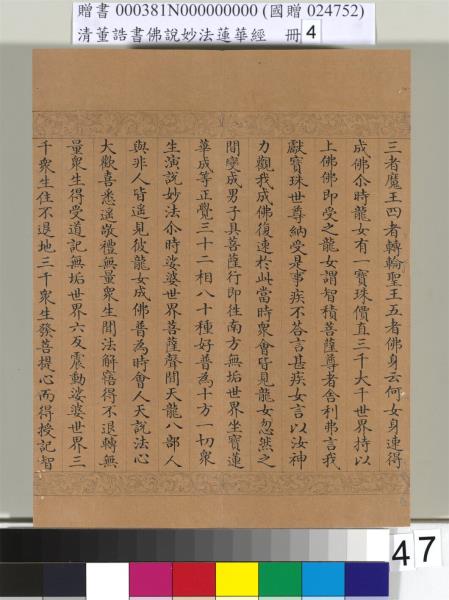 贈書 000381N000000000 (國贈 024752)
清董誥書佛說妙法蓮華經 冊 4
三者魔王四者轉輪聖王五者佛身云何女身速得
成佛尒時龍女有一寶珠價直三千大千世界持以
上佛佛即受之龍女謂智積菩薩尊者舍利弗言我
獻寶珠世尊納受是事疾不荅言甚疾女言以汝神
力觀我成佛復速於此當時眾會皆見龍女忽然之
間變成男子具菩薩行即往南方無垢世界坐寶蓮
華成等正覺三十二相八十種好普為十方一切眾
生演說妙法尒時娑婆世界菩薩聲聞天龍八部人
與非人皆遙見彼龍女成佛普為時會人天說法心
大歡喜悉遙敬禮無量眾生聞法解悟得不退轉無
量眾生得受道記無垢世界六反震動娑婆世界三
千眾生住不退地三千眾生發菩提心而得授記智
47